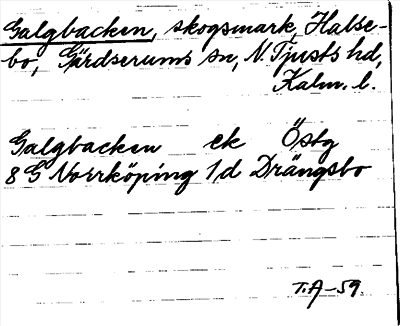 Galgbacken, skogsmark, Halse-
bo, Gärdserums sn, N. Tjusts hd,
Kalm. l.
Galgbacken ek Östg
8 G Norrköping 1d Drängsbo
T.A-59.